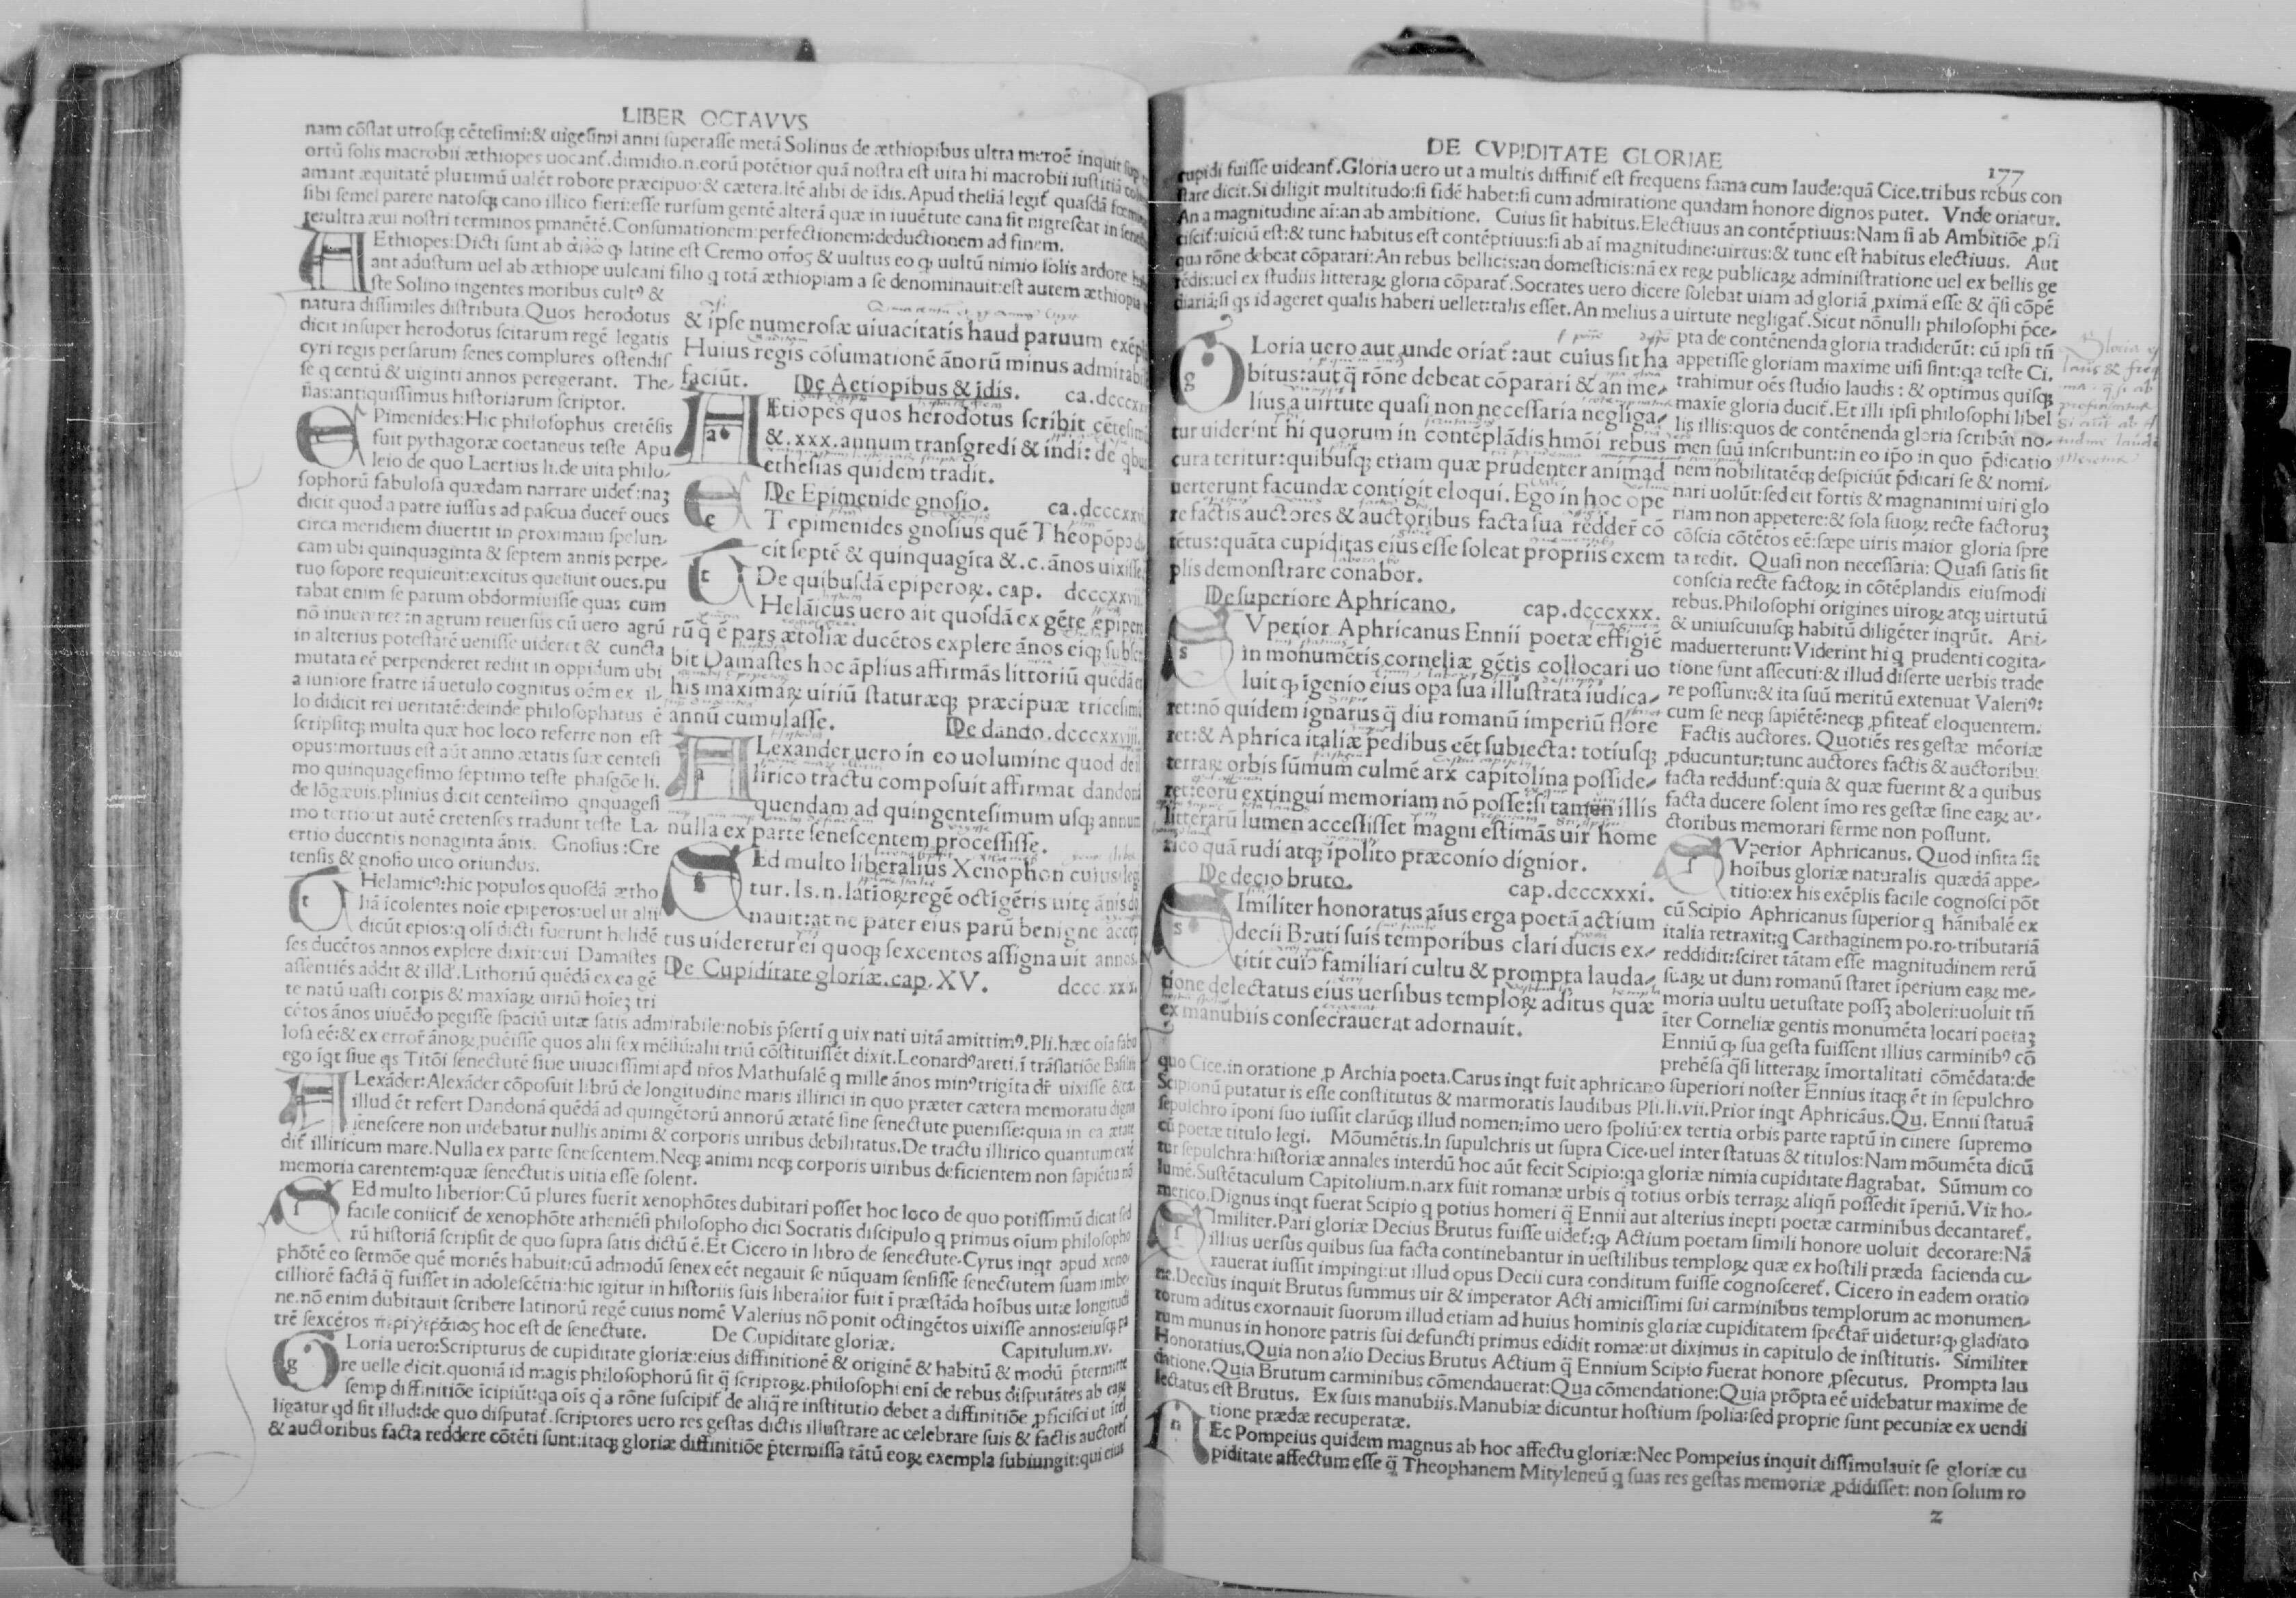 LIBER OCTAVVS
nam cōstat utrosq; cētesimi:& uigesimi anni superasse metā Solinus de æthiopibus ultra meroē inquit sup
ortū solis macrobii æthiopes uocant̃.dimidio.n.eorū potētior quā nostra est uita hi macrobii iustitiā
amant æquitatē plurimū ualēt robore præcipuo:& cætera.Itē alibi de īdis.Apud theliā legit̃ quasdā
sibi semel parere natosq; cano illico fieri:esse rursum gentē alterā quæ in iuuētute cana sit nigrescat in
re:ultra æui nostri terminos pmanētē.Consumationem:perfectionem:deductionem ad finem.
AEthiopes:Dicti sunt ab latine est Cremo & uultus eo uultū nimio solis ardore
ant adustum uel ab æthiope uulcani filio q totā æthiopiam a se denominauit:est autem æthiopia
ste Solino ingentes moribus cult⁹ &
natura dissimiles distributa.Quos herodotus
dicit insuper herodotus scitarum regē legatis
cyri regis persarum senes complures ostendis
se q centū & uiginti annos peregerant. The-
ñas:antiquissimus historiarum scriptor.
EPimenides:Hic philosophus cretēsis
fuit pythagoræ coetaneus teste Apu
leio de quo Laertius li.de uita philo-
sophorū fabulosa quædam narrare uidet̃:naz
dicit quod a patre iussus ad pascua ducer̃ oues
circa meridiem diuertit in proximam spelun-
cam ubi quinquaginta & septem annis perpe-
tuo sopore requieuit:excitus quesiuit oues.pu
tabat enim se parum obdormiuisse quas cum
nō inueniret in agrum reuersus cū uero agrū
in alterius potestatē uenisse uideret & cuncta
mutata eē perpenderet rediit in oppidum ubi
a iuniore fratre iā uetulo cognitus oēm ex il-
lo didicit rei ueritatē:deinde philosophatus ē
scripsitq; multa quæ hoc loco referre non est
opus:mortuus est aūt anno ætatis suæ centesi
mo quinquagesimo septimo teste phlasgōe li.
de lōgæuis.plinius dicit centesimo qnquagesi
mo tertio:ut autē cretenses tradunt teste La-
ertio ducentis nonaginta ānis. Gnosius:Cre
tensis & gnosio uico oriundus.
THelamic⁹:hic populos quosdā ætho
liā īcolentes noīe epiperos:uel ut alii
dicūt epios:q olī dicti fuerunt helidē
ses ducētos annos explere dixit:cui Damastes
assentiēs addit & illd'.Lithoriū quēdā ex ea gē
te natū uasti corpis & maxīaꝝ uiriū hoīez tri
cētos ānos uiuēdo pegisse spaciū uitæ satis admirabile:nobis p̄sertī q uix nati uitā amittim⁹.Pli.hæc oīa fabu
losa eē:& ex error̃ ānoꝝ puēisse quos alii sex mēsiū:alii triū cōstituissēt dixit.Leonard⁹areti.ī trāslatiōe Basilii
ego īqt siue qs Titōi senectutē siue uiuacissimi apd' nr̃os Mathusalē q mille ānos min⁹trigīta dr̃ uixisse
ALexāder:Alexāder cōposuit librū de longitudine maris illirici in quo præter cætera memoratu digna
illud ēt refert Dandonā quēdā ad quingētorū annorū ætatē sine senectute puenisse:quia in ea ætate
senescere non uidebatur nullis animi & corporis uiribus debilitatus.De tractu illirico quantum
dit̃ illiricum mare.Nulla ex parte senescentem.Neq; animi neq; corporis uiribus deficientem non sapiētia nō
memoria carentem:quæ senectutis uitia esse solent.
SEd multo liberior:Cū plures fuerīt xenophōtes dubitari posset hoc loco de quo potissimū dicat sed
facile coniicit̃ de xenophōte atheniēsi philosopho dici Socratis discipulo q primus oīum philosopho
rū historiā scripsit de quo supra satis dictū ē.Et Cicero in libro de senectute.Cyrus inqt apud xeno
phōtē eo sermōe quē moriēs habuit:cū admodū senex eēt negauit se nūquam sensisse senectutem suam imbe
cilliorē factā q̄ fuisset in adolescētia:hic igitur in historiis suis liberalior fuit ī præstāda hoībus uitæ longitudi
ne.nō enim dubitauit scribere latinorū regē cuius nomē Valerius nō ponit octingētos uixisse annos:eiusq; pa
trē sexcētos hoc est de senectute. De Cupiditate gloriæ. Capitulum.xv.
GLoria uero:Scripturus de cupiditate gloriæ:eius diffinitionē & originē & habitū & modū p̄termitte
re uelle dicit.quoniā id magis philosophorū sit q̄ scriptoꝝ.philosophi enī de rebus disputātes ab eaꝝ
semp diffinitiōe īcipiūt:qa oīs q̄ a rōne suscipit̃ de aliq̄ re institutio debet a diffinitiōe pficisci ut ītel
ligatur qd sit illud:de quo disputat̃.scriptores uero res gestas dictis illustrare ac celebrare suis & factis auctores
& auctoribus facta reddere cōtēti sunt:itaq; gloriæ diffinitiōe p̄termissa tātū eoꝝ exempla subiungit:qui eius
& ipse numerosæ uiuacitatis haud paruum exēpl
Huius regis cōsumationē ānorū minus admirabi
faciūt. De Aetiopibus & īdis. ca.dcccxx
AEtiopes quos herodotus scribit cētesimū
&.xxx.annum transgredi & īndi: de qbus
ethesias quidem tradit.
De Epimenide gnosio. ca.dcccxxvi
ET epimenides gnosius quē Theopōpo
cit septē & quinquagīta &.c.ānos uixisse.
De quibusdā epiperoꝝ. cap. dcccxxvii.
THelāicus uero ait quosdā ex gēte epipero
rū q ē pars ætoliæ ducētos explere ānos eiq; subscri
bit Damastes hoc āplius affirmās littoriū quēdā
his maximaꝝ uiriū staturæq; præcipuæ tricesimū
annū cumulasse. De dando.dcccxxviii.
ALexander uero in eo uolumine quod de il
lirico tractu composuit affirmat dandona
quendam ad quingentesimum usq; annum
nulla ex parte senescentem processisse.
SEd multo liberalius Xenophon cuius leg
tur. Is.n.latioꝝregē octīgētis uitę ānis do
nauit:at ne pater eius parū benigne accep
tus uideretur ei quoq; sexcentos assignauit annos.
De Cupiditate gloriæ.cap.XV. dccc.xxix.
DE CVPIDITATE GLORIAE 177
cupidi fuisse uideant̃.Gloria uero ut a multis diffinit̃ est frequens fama cum laude:quā Cice.tribus rebus con
stare dicit.Si diligit multitudo:si fidē habet:si cum admiratione quadam honore dignos putet. Vnde oriatur.
An a magnitudine aī:an ab ambitione. Cuius sit habitus.Electiuus an contēptiuus:Nam si ab Ambitiōe psi
ciscit̃:uiciū est:& tunc habitus est contēptiuus:si ab aī magnitudine:uirtus:& tunc est habitus electiuus. Aut
qua rōne debeat cōparari:An rebus bellicis:an domesticis:nā ex reꝝ publicaꝝ administratione uel ex bellis ge
rēdis:uel ex studiis litteraꝝ gloria cōparat̃.Socrates uero dicere solebat uiam ad gloriā pximā esse & q̄si cōpē
diariā:si qs id ageret qualis haberi uellet:talis esset.An melius a uirtute negligat̃.Sicut nōnulli philosophi p̄ce-
GLoria uero aut unde oriat̃:aut cuius sit ha
bitus:aut q̄ rōne debeat cōparari & an me-
lius a uirtute quasi non necessaria negliga-
tur uiderint hi quorum in contēplādis hmōi rebus
cura teritur:quibusq; etiam quæ prudenter animad
uerterunt facundæ contigit eloqui. Ego in hoc ope
re factis auctores & auctoribus facta sua redder̃ cō
tētus:quāta cupiditas eius esse soleat propriis exem
plis demonstrare conabor.
De superiore Aphricano. cap.dcccxxx.
SVperior Aphricanus Ennii poetæ effigiē
in monumētis corneliæ gētis collocari uo
luit ꝙ īgenio eius opa sua illustrata iudica-
ret:nō quidem ignarus q̄ diu romanū imperiū flore
ret:& Aphrica italiæ pedibus eēt subiecta: totiusq;
terraꝝ orbis sūmum culmē arx capitolina posside-
ret:eorū extingui memoriam nō posse:si tamen illis
litterarū lumen accessisset magni estimās uir home
rico quā rudi atq; īpolito præconio dignior.
De decio bruto. cap.dcccxxxi.
SImiliter honoratus aīus erga poetā actium
decii Bruti suis temporibus clari ducis ex-
titit cuiꝰ familiari cultu & prompta lauda-
tione delectatus eius uersibus temploꝝ aditus quæ
ex manubiis consecrauerat adornauit.
pta de contēnenda gloria tradiderūt: cū ipsi tñ
appetisse gloriam maxime uisi sint:qa teste Ci.
trahimur oēs studio laudis : & optimus quisq;
maxīe gloria ducit̃.Et illi ipsi philosophi libel
lis illis:quos de contēnenda gloria scribūt no-
men suū inscribunt:in eo ip̄o in quo p̄dicatio
nem nobilitatēq; despiciūt p̄dicari se & nomi-
nari uolūt:sed est fortis & magnanimi uiri glo
riam non appetere:& sola suoꝝ recte factoruz
cōscia cōtētos eē:sæpe uiris maior gloria spre
ta redit. Quasi non necessaria: Quasi satis sit
conscia recte factoꝝ in cōtēplandis eiusmodi
rebus.Philosophi origines uiroꝝ atq; uirtutū
& uniuscuiusq; habitū diligēter inqrūt. Ani-
maduerterunt: Viderint hi q prudenti cogita-
tione sunt assecuti:& illud diserte uerbis trade
re possunt:& ita suū meritū extenuat Valeri⁹:
cum se neq; sapiētē:neq; pfiteat̃ eloquentem.
Factis auctores. Quotiēs res gestæ mēoriæ
pducuntur:tunc auctores factis & auctoribu:
facta reddunt̃:quia & quæ fuerint & a quibus
facta ducere solent īmo res gestæ sine eaꝝ au-
ctoribus memorari ferme non possunt.
SVperior Aphricanus. Quod insita sit
hoībus gloriæ naturalis quædā appe-
titio:ex his exēplis facile cognosci pōt
cū Scipio Aphricanus superior q hānibalē ex
italia retraxit:q Carthaginem po.ro.tributariā
reddidit:sciret tātam esse magnitudinem rerū
suaꝝ ut dum romanū staret īperium eaꝝ me-
moria uultu uetustate possz aboleri:uoluit tñ
īter Corneliæ gentis monumēta locari poetaz
Enniū ꝙ sua gesta fuissent illius carminib⁹ cō
prehēsa q̄si litteraꝝ īmortalitati cōmēdata:de
quo Cice.in oratione p Archia poeta.Carus inqt fuit aphricano superiori noster Ennius itaq; ēt in sepulchro
Scipionū putatur is esse constitutus & marmoratis laudibus Pli.li.vii.Prior inqt Aphricāus.Qu. Ennii statuā
sepulchro īponi suo iussit clarūq; illud nomen:īmo uero spoliū:ex tertia orbis parte raptū in cinere supremo
cū poetæ titulo legi. Mōumētis.In supulchris ut supra Cice.uel inter statuas & titulos:Nam mōumēta dicū
tur sepulchra:historiæ annales interdū hoc aūt fecit Scipio:qa gloriæ nimia cupiditate flagrabat. Sūmum co
lumē.Sustētaculum Capitolium.n.arx fuit romanæ urbis q̄ totius orbis terraꝝ aliqñ possedit īperiū. Vir ho-
merico.Dignus inqt fuerat Scipio q potius homeri q̄ Ennii aut alterius inepti poetæ carminibus decantaret̃.
SImiliter.Pari gloriæ Decius Brutus fuisse uidet̃:ꝙ Actium poetam simili honore uoluit decorare:Nā
illius uersus quibus sua facta continebantur in uestilibus temploꝝ quæ ex hostili præda facienda cu-
rauerat iussit impingi:ut illud opus Decii cura conditum fuisse cognosceret̃. Cicero in eadem oratio
ne.Decius inquit Brutus summus uir & imperator Acti amicissimi sui carminibus templorum ac monumen-
torum aditus exornauit suorum illud etiam ad huius hominis gloriæ cupiditatem spectar̃ uidetur:ꝙ gladiato
rum munus in honore patris sui defuncti primus edidit romæ:ut diximus in capitulo de institutis. Similiter
Honoratius.Quia non alio Decius Brutus Actium q̄ Ennium Scipio fuerat honore psecutus. Prompta lau
datione.Quia Brutum carminibus cōmendauerat:Qua cōmendatione:Quia prōpta eē uidebatur maxime de
lectatus est Brutus. Ex suis manubiis.Manubiæ dicuntur hostium spolia:sed proprie sunt pecuniæ ex uendi
tione prædæ recuperatæ.
NEc Pompeius quidem magnus ab hoc affectu gloriæ:Nec Pompeius inquit dissimulauit se gloriæ cu
piditate affectum esse q̄ Theophanem Mityleneū q suas res gestas memoriæ pdidisset: non solum ro
z